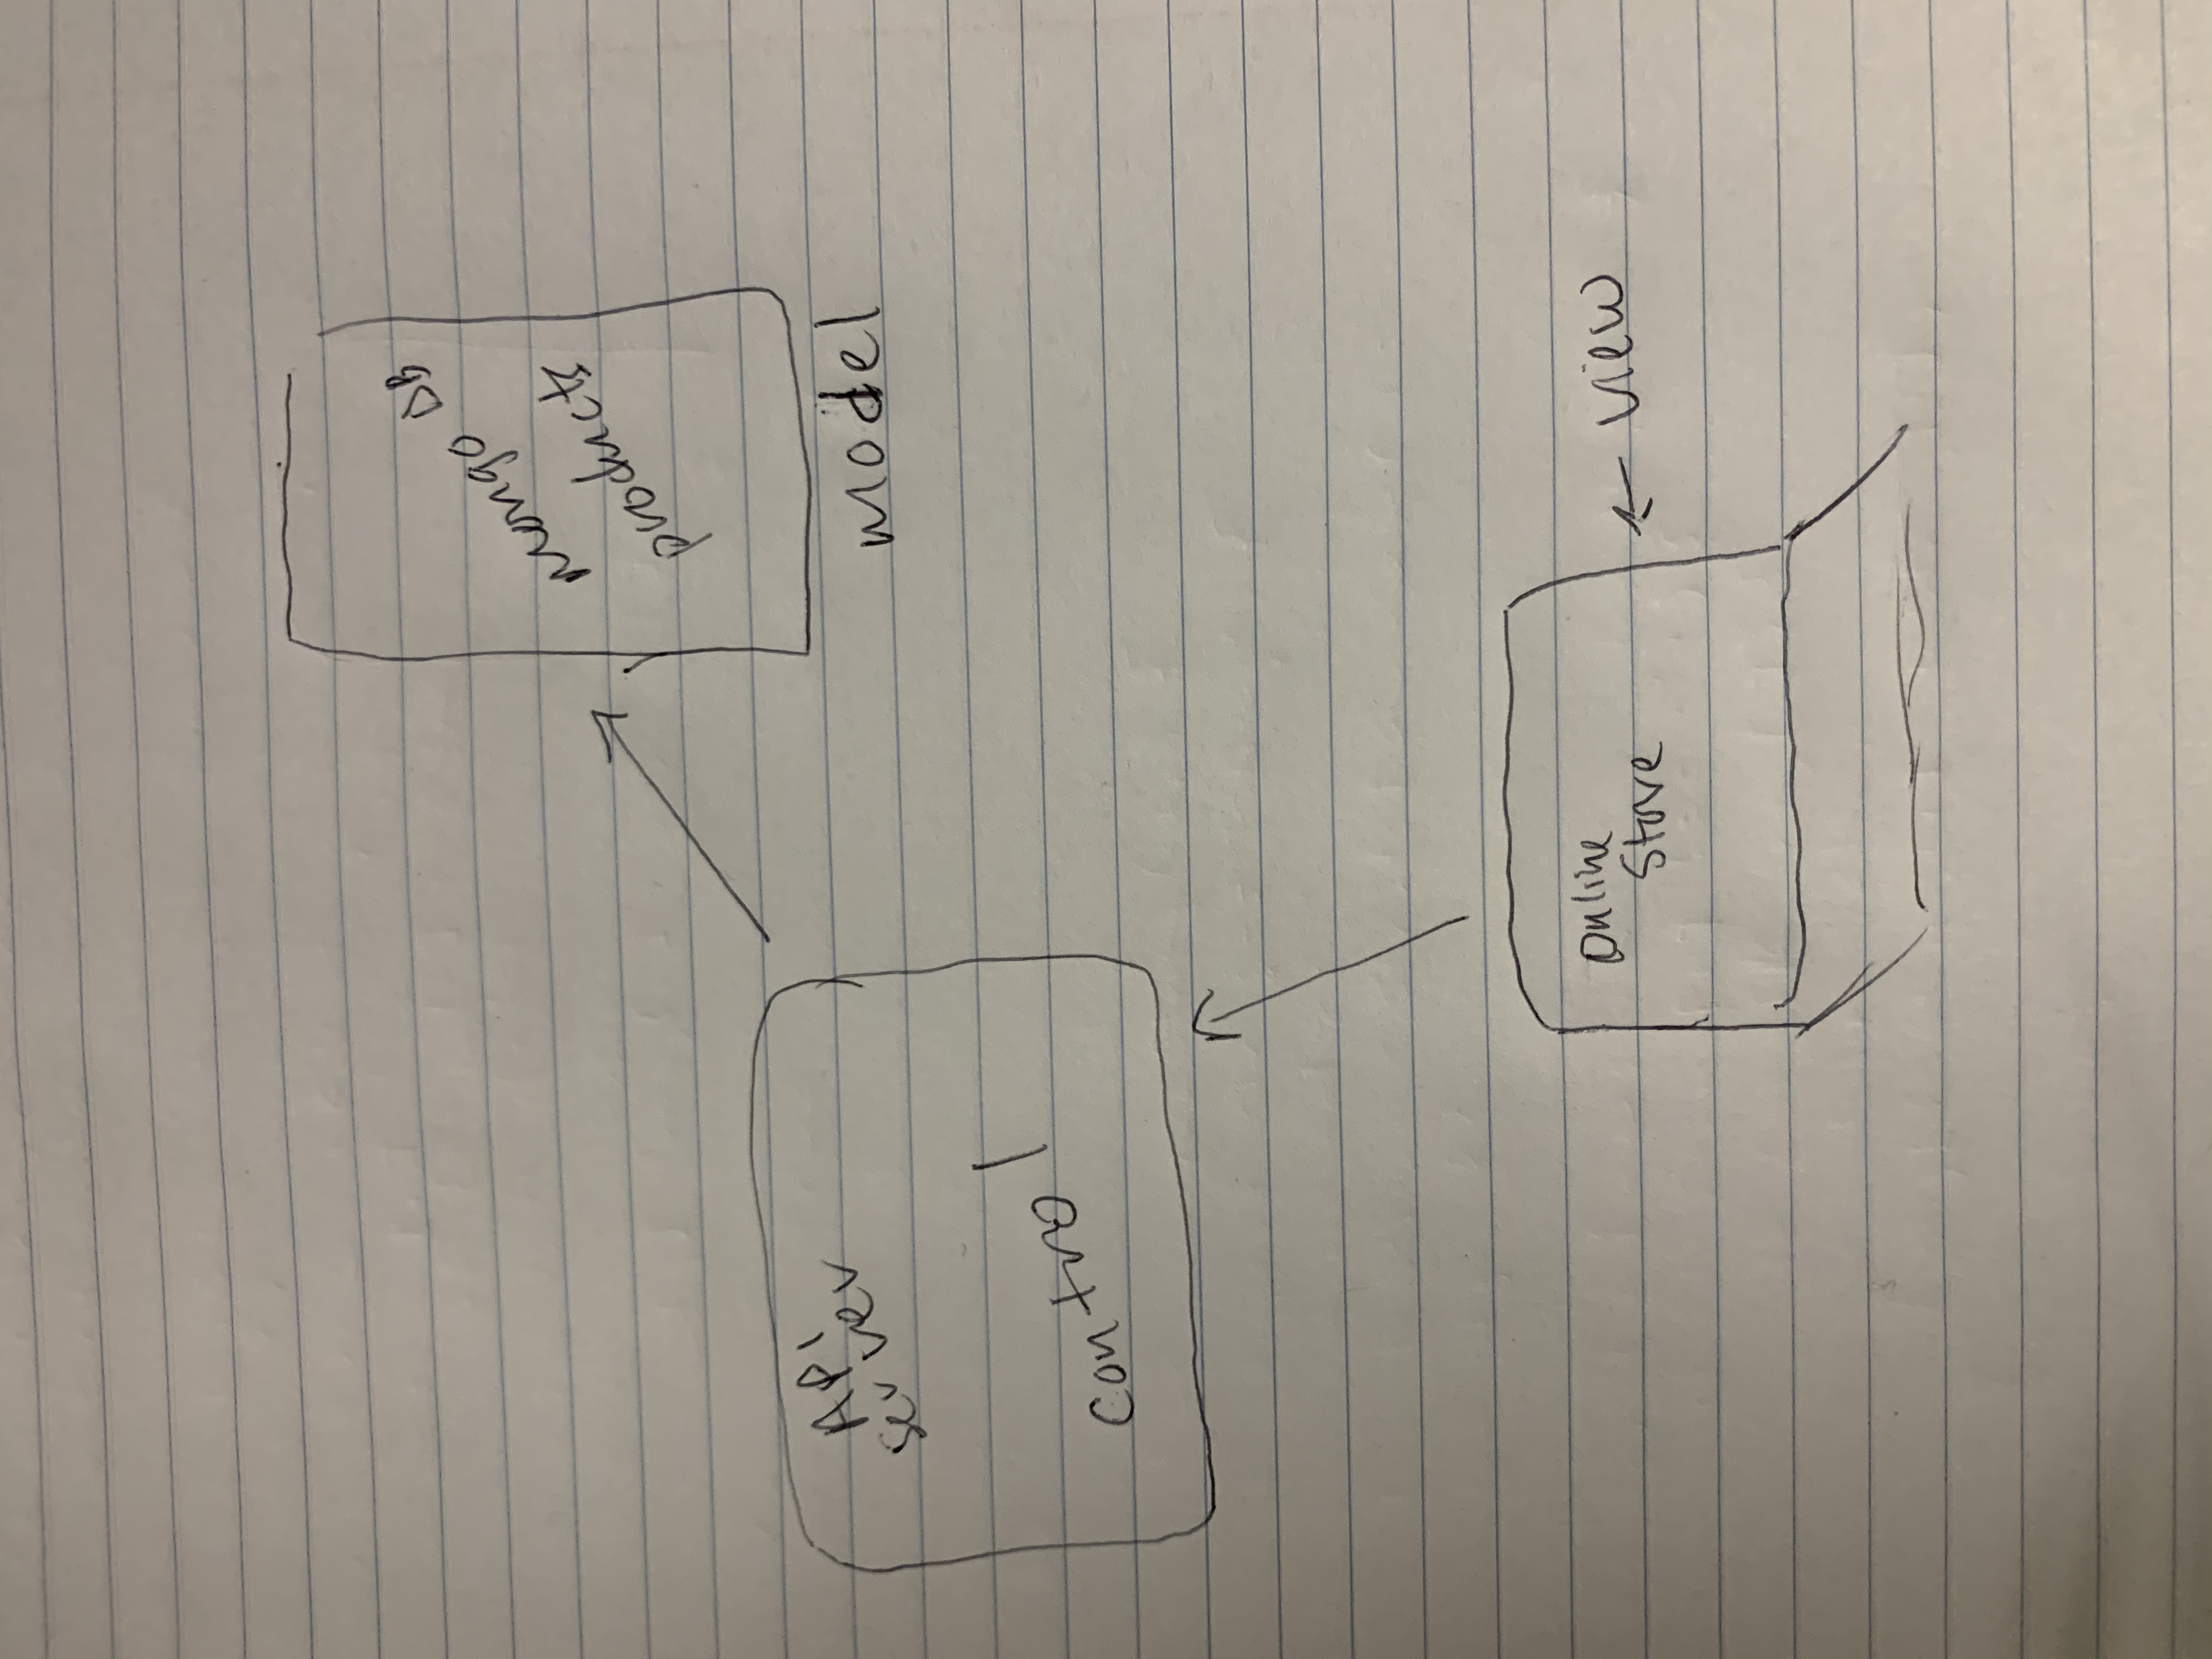 mongo DB
products
model
API
server
control
Online
Store
view